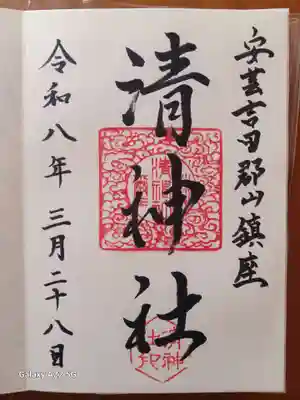 安芸吉田郡山鎮座
清神社
令和八年三月二十八日
清神
社印
Galaxy A25 5G